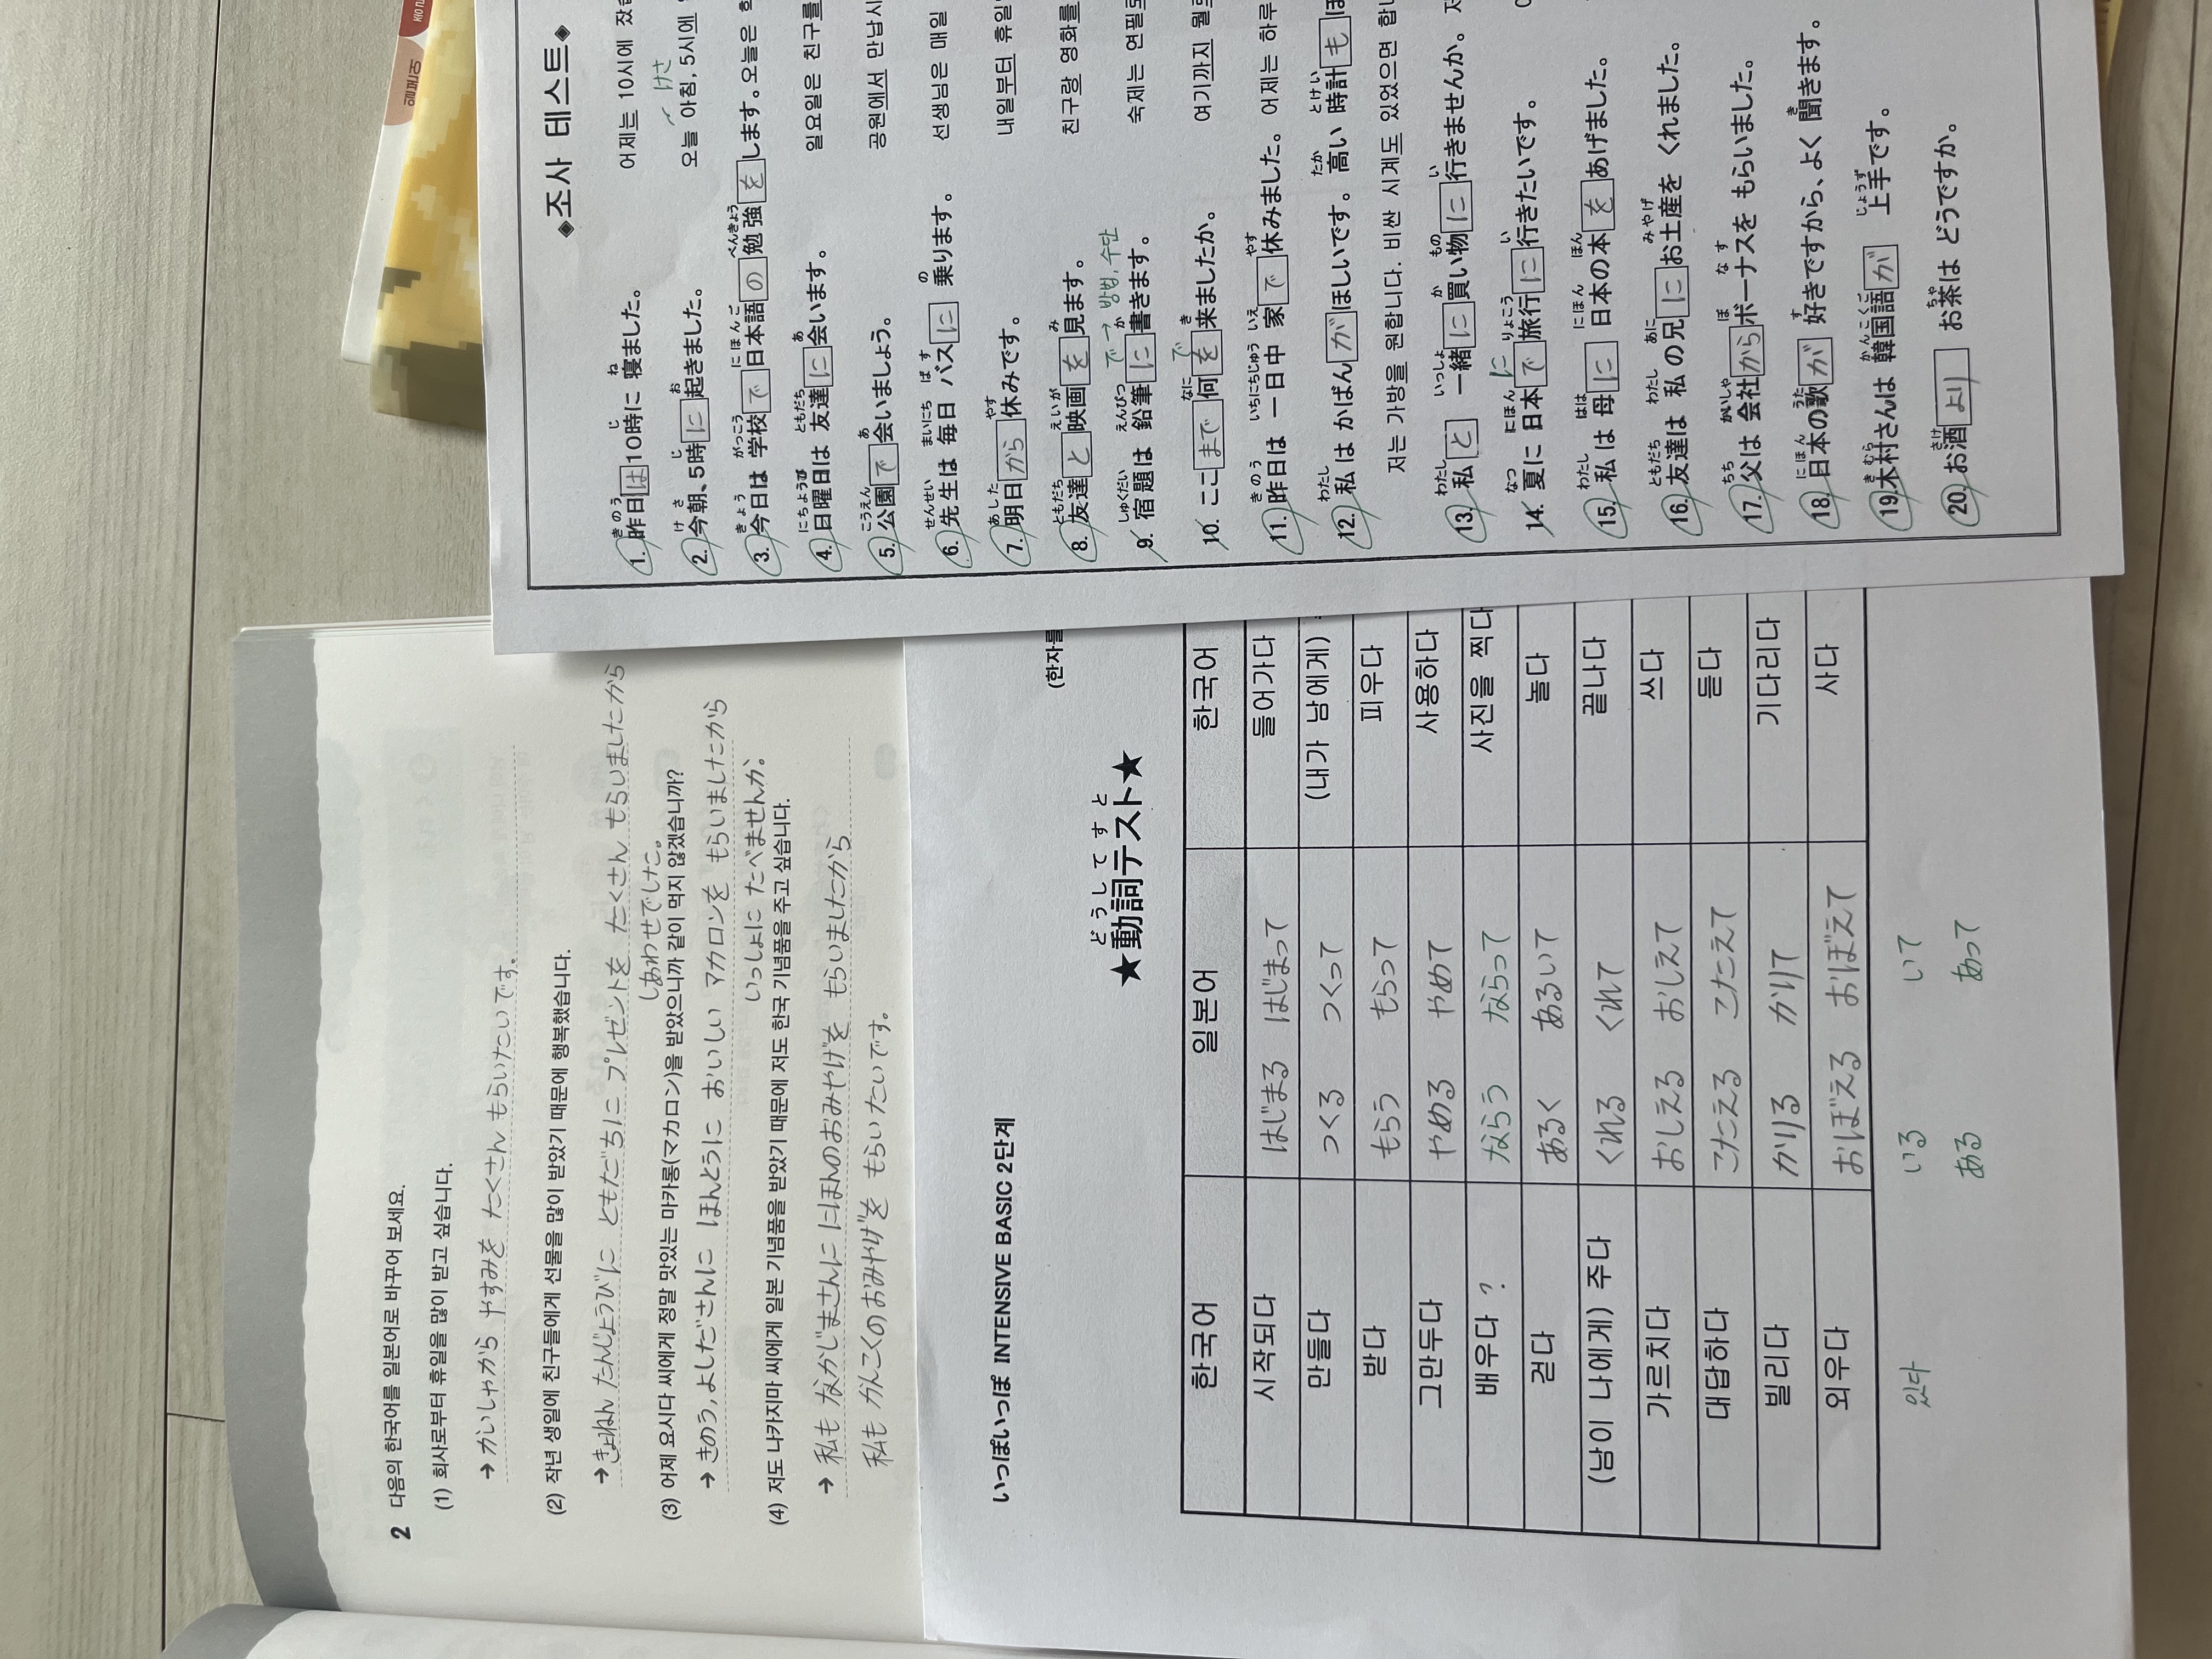 2 다음의 한국어를 일본어로 바꾸어 보세요.
(1) 회사로부터 휴일을 많이 받고 싶습니다.
→ かいしゃから やすみを たくさん もらいたいです。
(2) 작년 생일에 친구들에게 선물을 많이 받았기 때문에 행복했습니다.
→ きょねん たんじょうびに ともだちに プレゼントを たくさん もらいましたから
しあわせでした。
(3) 어제 요시다 씨에게 정말 맛있는 마카롱(マカロン)을 받았으니까 같이 먹지 않겠습니까?
→ きのう,よしださんに ほんとうに おいしい マカロンを もらいましたから
いっしょに たべませんか。
(4) 저도 나카지마 씨에게 일본 기념품을 받았기 때문에 저도 한국 기념품을 주고 싶습니다.
→ 私も なかじまさんに にほんのおみやげを もらいましたから
私も かんこくのおみやげを もらいたいです。
いっぽいっぽ INTENSIVE BASIC 2단계
どうし て す と
★動詞テスト★
(한자를
한국어 일본어 한국어
시작되다 はじまる はじまって 들어가다
만들다 つくる つくって (내가 남에게)
받다 もらう もらって 피우다
그만두다 やめる やめて 사용하다
배우다 ? ならう ならって 사진을 찍다
걷다 あるく あるいて 놀다
(남이 나에게) 주다 くれる くれて 끝나다
가르치다 おしえる おしえて 쓰다
대답하다 こたえる こたえて 듣다
빌리다 かりる かりて 기다리다
외우다 おぼえる おぼえて 사다
있다 いる いて
ある あって
◈조사 테스트◈
きのう じ ね
1. 昨日は10時に 寝ました。 어제는 10시에 잤습
けさ
け さ じ お
2. 今朝、5時に起きました。 오늘 아침, 5시에
きょう がっこう にほんご べんきょう
3. 今日は 学校で日本語の勉強をします。 오늘은 학
にちようび ともだち あ
4. 日曜日は 友達に会います。 일요일은 친구를
こうえん あ
5. 公園で会いましょう。 공원에서 만납시
せんせい まいにち ばす の
6. 先生は 毎日 バスに 乗ります。 선생님은 매일
あした やす
7. 明日から休みです。 내일부터 휴일
ともだち えいが み
8. 友達と映画を見ます。 친구랑 영화를
で → 방법, 수단
しゅくだい えんぴつ か
9. 宿題は 鉛筆に書きます。 숙제는 연필로
で
なに き
10. ここまで何を来ましたか。 여기까지 뭘로
きのう いちにちじゅう いえ やす
11. 昨日は 一日中 家で休みました。 어제는 하루
わたし たか とけい
12. 私は かばんがほしいです。高い 時計も
저는 가방을 원합니다. 비싼 시계도 있었으면 합니
わたし いっしょ か もの い
13. 私と 一緒に買い物に行きませんか。
に
なつ にほん りょこう い
14. 夏に 日本で旅行に行きたいです。
わたし はは にほん ほん
15. 私は 母に 日本の本をあげました。
ともだち わたし あに みやげ
16. 友達は 私の兄にお土産を くれました。
ちち かいしゃ ぼ な す
17. 父は 会社からボーナスを もらいました。
にほん うた す き
18. 日本の歌が 好きですから、よく 聞きます。
き むら かんこくご じょうず
19. 木村さんは 韓国語が 上手です。
さけ ちゃ
20. お酒より お茶は どうですか。